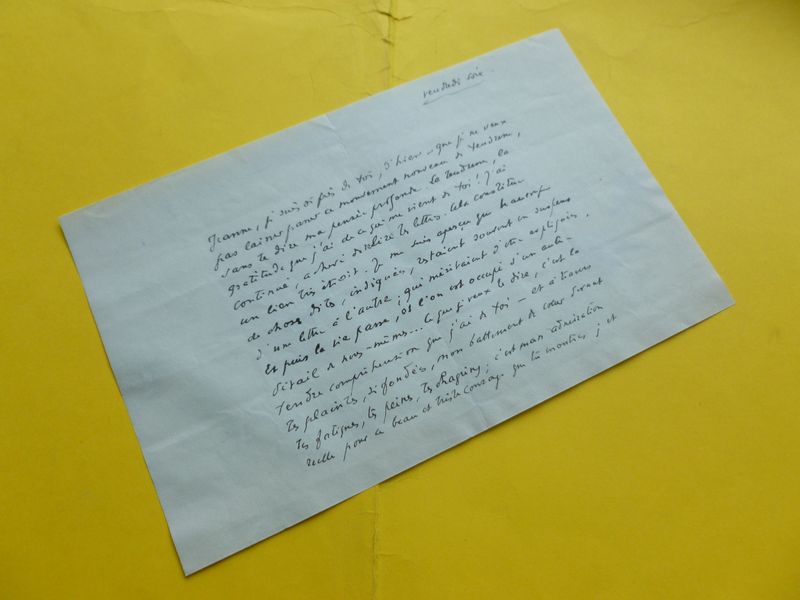 vendredi soir.
Jeanne, je suis si près de toi, d'hier – que je ne veux
pas laisser passer ce mouvement nouveau de tendresse,
sans te dire ma pensée profonde. La tendresse, la
gratitude que j'ai de ce qui me vient de toi ! J'ai
continué, achevé de relire tes lettres. Cela constitue
un lien très étroit. Je me suis aperçu que beaucoup
de choses dites, indiquées, restaient souvent en suspens
d'une lettre à l'autre ; qui méritaient d'être expliquées.
Et puis la vie passe, et l'on est occupé d'un autre
détail de nous-mêmes... Ce que je veux te dire, c'est la
tendre compréhension que j'ai de toi – et à travers
tes plaintes, si fondées, mon battement de cœur devant
tes fatigues, tes peines, tes chagrins ; c'est mon admiration
réelle pour ce beau et triste courage que tu montres ; et